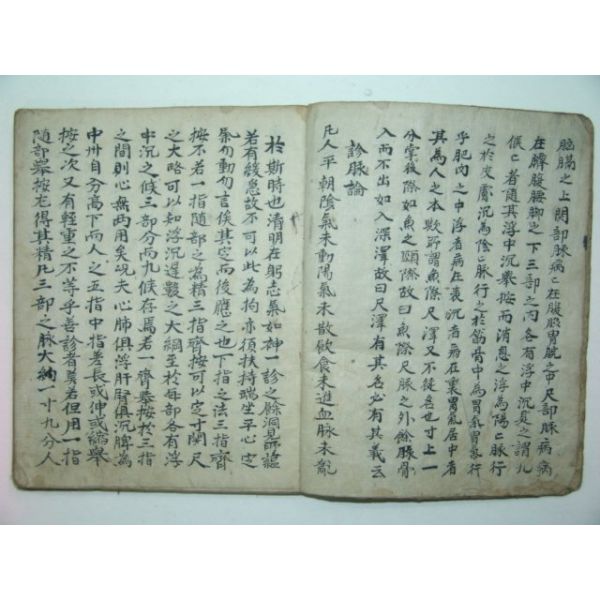 胎腸之上関部脉病亡在腹膜胃脘之中尺部脉病病
在臍腹腰脚之下三部之內各有浮中沉是之謂九
候亡者随其浮中沉擧按而消息之浮為陽亡脉行
之於皮膚沉為陰亡脉行之於筋骨中為胃氣胃氣行
乎肥肉之中浮者病在表沉者病在裏胃氣居中者
其為人之本歟所謂魚際尺澤又不徒名也寸上一
分掌後際如魚之頤際故曰魚際尺脉之外餘脉骨
入而不出如入深澤故曰尺澤有其名必有其義云
診脉論
凡人平朝陰氣未動陽氣未散飮食未進血脉未亂
於斯時也清明在躬志氣如神一診之餘洞見所蘊
若有緩急故不可以此為拘亦須扶持端坐平心定
氣勿動勿言俟其定而後應之也下指之法三指齊
按不若一指随部之為精三指齊按可以定寸関尺
之大略可以知浮沉遅數之大綱至於每部各有浮
中沉之候三部分而九候存焉若一齊擧按於三指
之間則心無兩用矣况夫心肺俱浮肝腎俱沉脾為
中州自分高下而人之五指中指差長或伸或縮擧
按之次又有輕重之不等乎善診者莫若但用一指
随部擧按庶得其精凡三部之脉大約一寸九分人